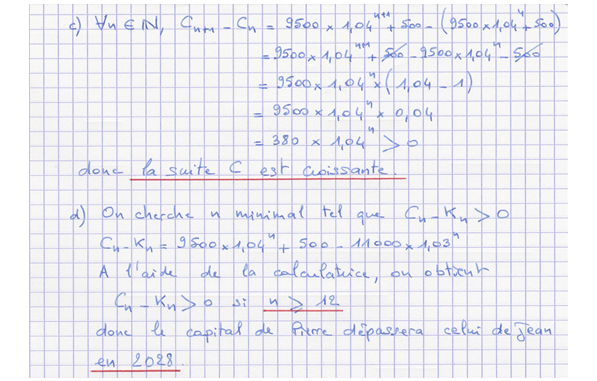 c) ∀n ∈ ℕ, Cₙ₊₁ - Cₙ = 9500 × 1,04ⁿ⁺¹ + 500 - (9500 × 1,04ⁿ + 500)
= 9500 × 1,04ⁿ⁺¹ + 500 - 9500 × 1,04ⁿ - 500
= 9500 × 1,04ⁿ × (1,04 - 1)
= 9500 × 1,04ⁿ × 0,04
= 380 × 1,04ⁿ > 0
donc la suite C est croissante.
d) On cherche n minimal tel que Cₙ - Kₙ > 0
Cₙ - Kₙ = 9500 × 1,04ⁿ + 500 - 11000 × 1,03ⁿ
A l'aide de la calculatrice, on obtient
Cₙ - Kₙ > 0 si n ≥ 12
donc le capital de Pierre dépassera celui de Jean
en 2028.